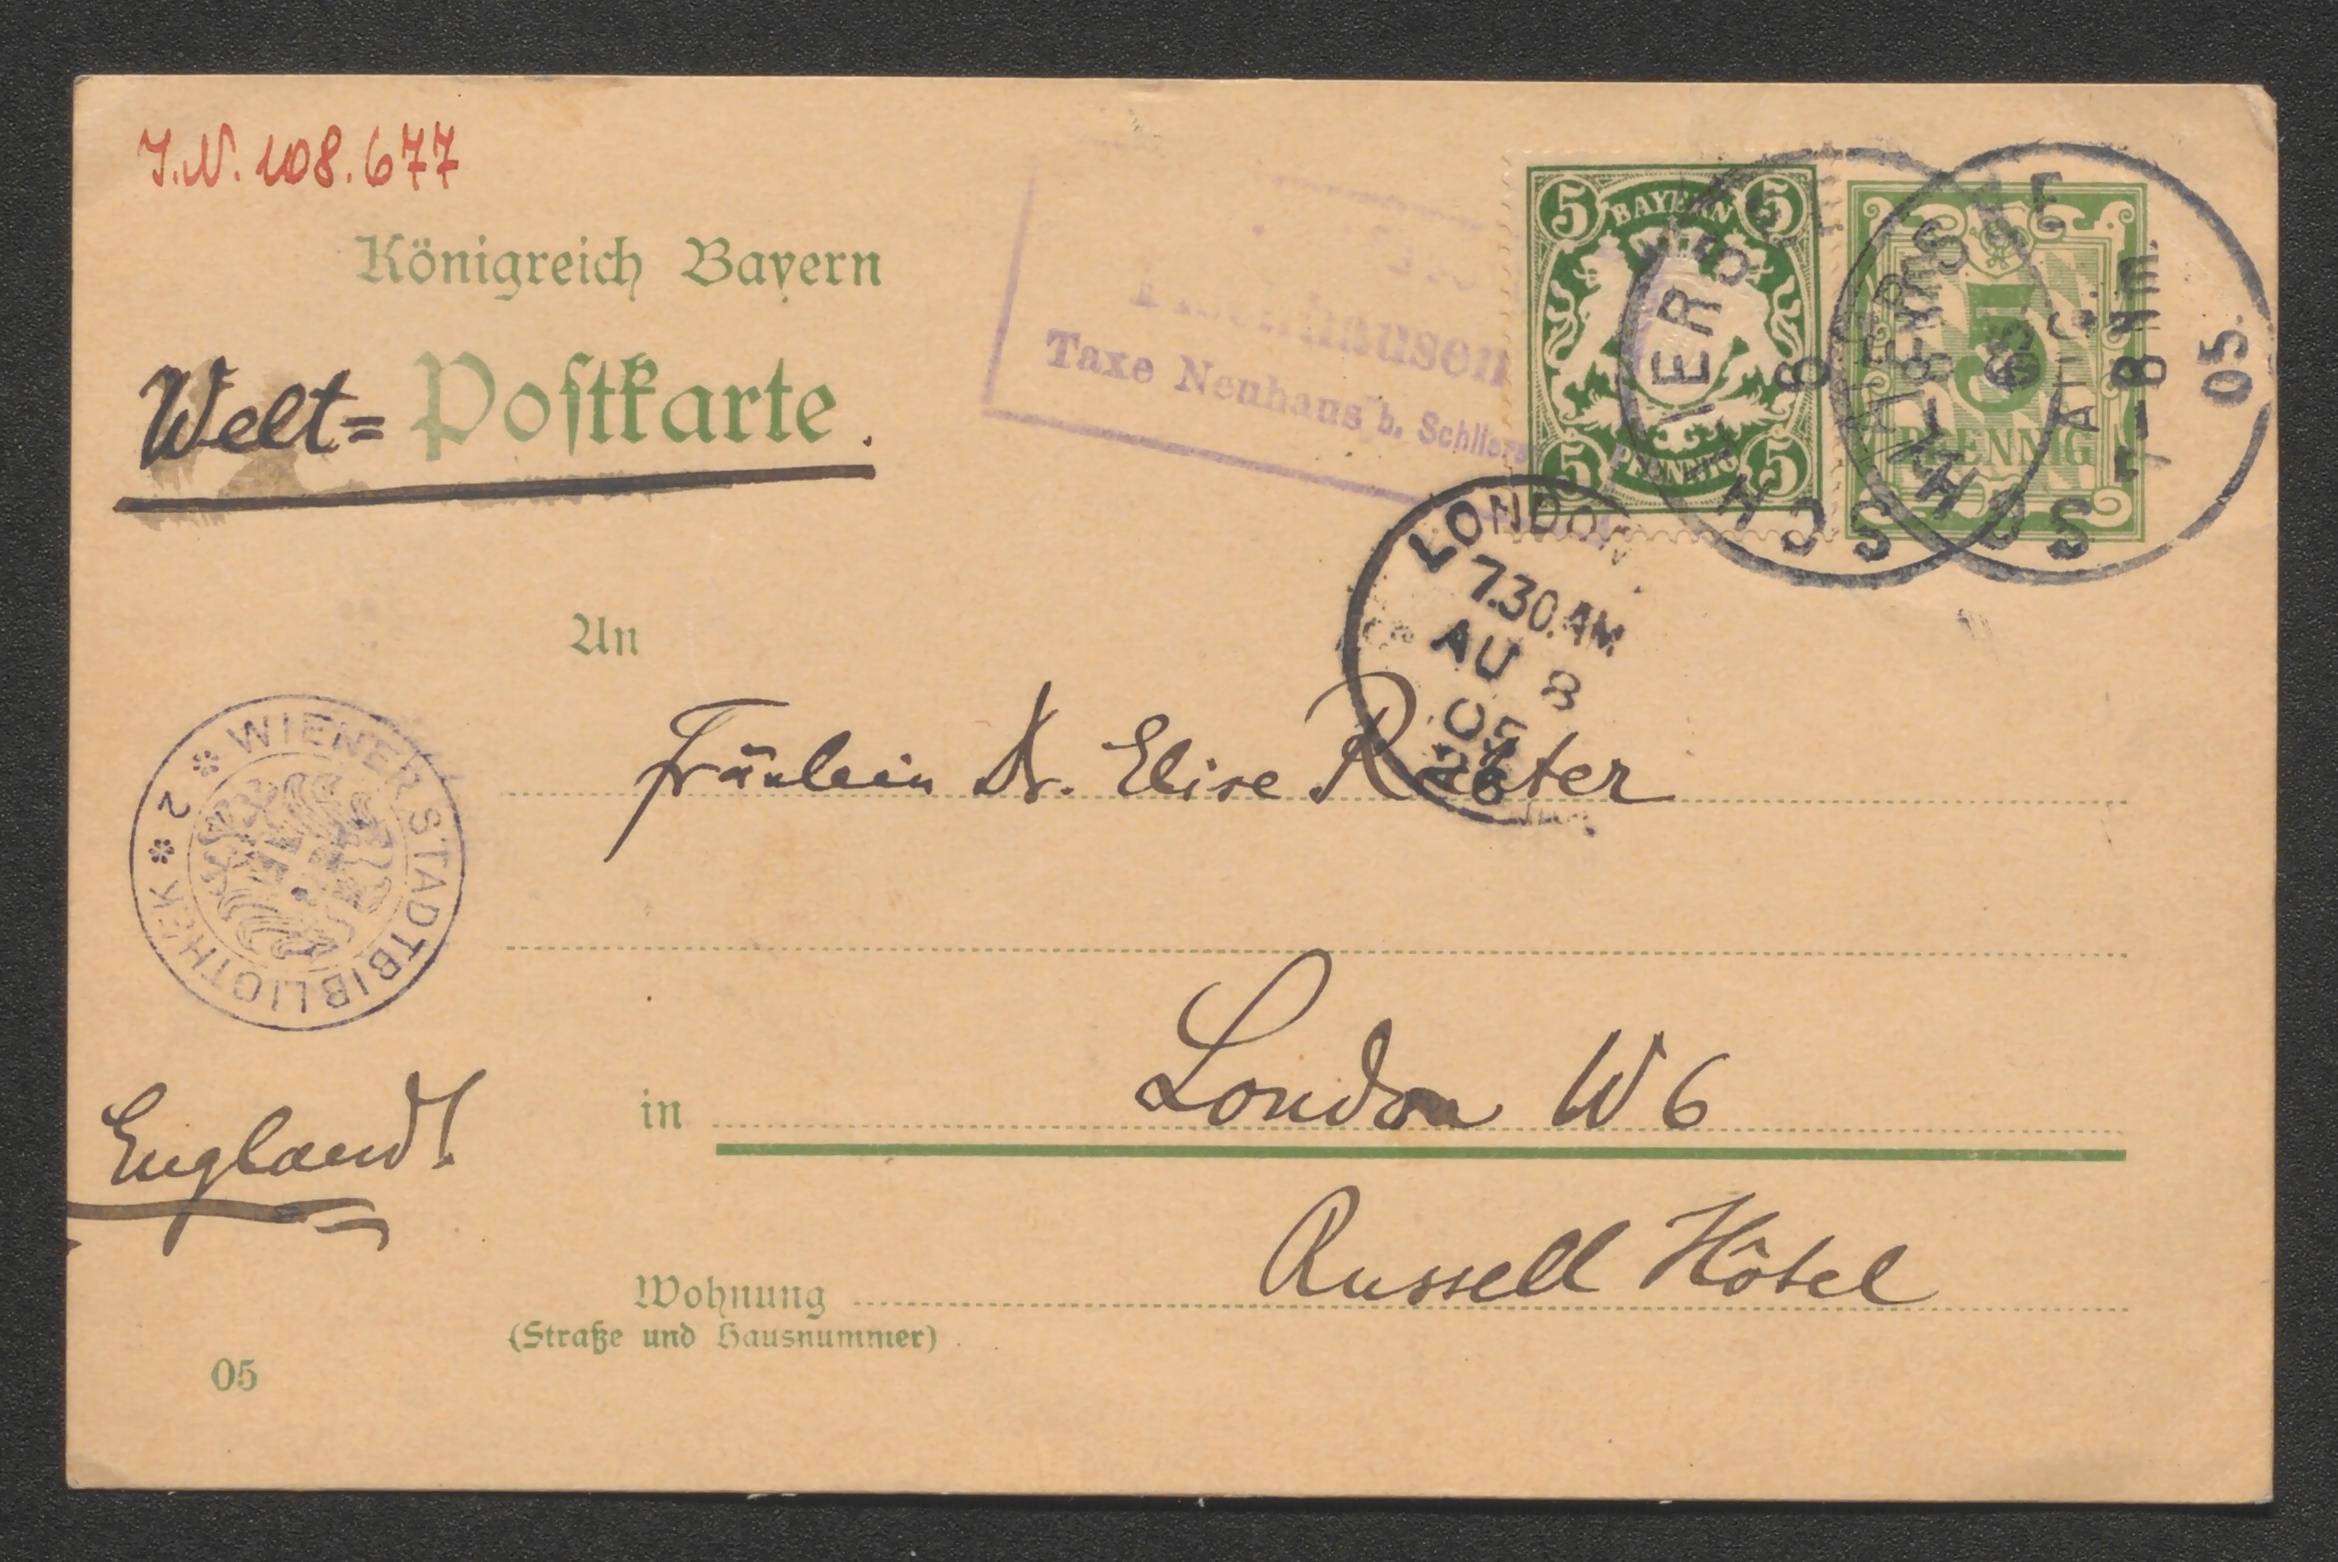 J.N. 108.677
Königreich Bayern
Welt= Postkarte.
Taxe Neuhaus b. Schliers
5 BAYERN 5
5 PFENNIG 5
5
PFENNIG
SCHLIERSEE
6
SCHLIERSEE
6 AUG.
7-8 Nm.
05.
LONDON
7.30.AM
AU 8
05
26
An
Fräulein Dr. Elise Richter
WIENER STADTBIBLIOTHEK * 2 *
in London W 6
England!
Russell Hôtel
Wohnung
(Straße und Hausnummer)
05